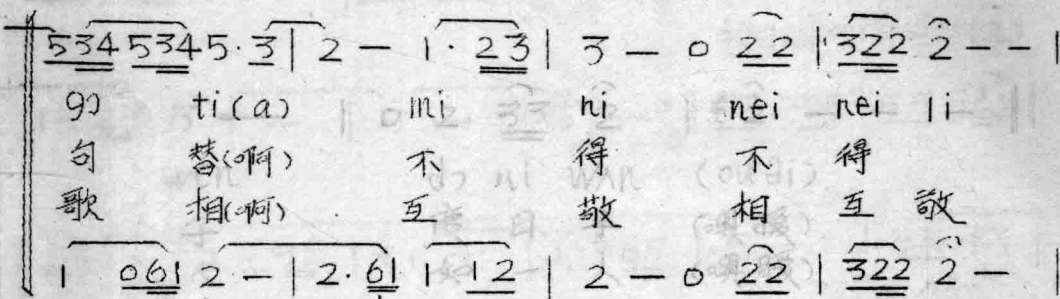 534 534 5·3 | 2 — 1·23 | 3 — 0 22 | 322 2 — — |
ti(a) mi ni nei nei li
句 替(啊) 不 得 不 得
歌 相(啊) 互 敬 相 互 敬
1 061 2 — | 2·61 1 2 | 2 — 0 22 | 322 2 — |